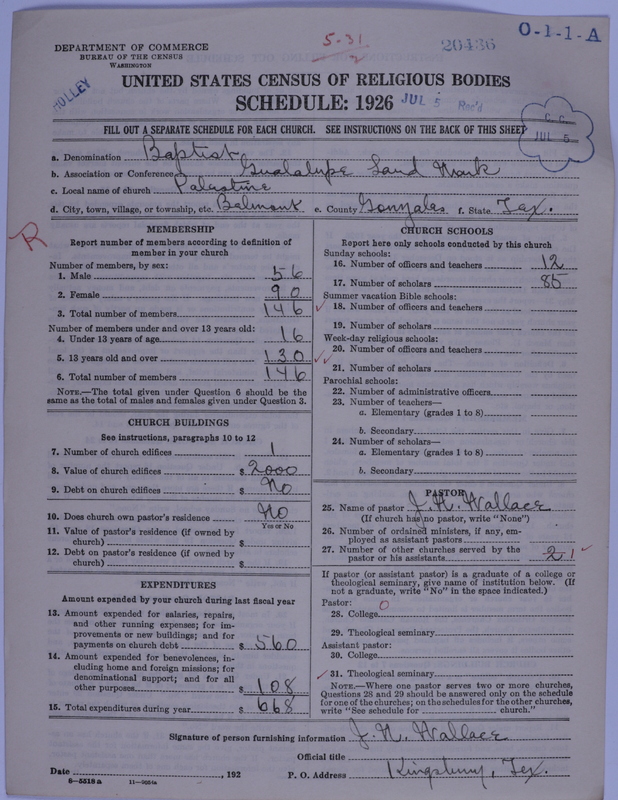 5-31
2
20436
O-1-1-A
DEPARTMENT OF COMMERCE
BUREAU OF THE CENSUS
WASHINGTON
HOLLEY
UNITED STATES CENSUS OF RELIGIOUS BODIES
SCHEDULE: 1926
JUL 5 Rec'd
C. C.
JUL 5
FILL OUT A SEPARATE SCHEDULE FOR EACH CHURCH. SEE INSTRUCTIONS ON THE BACK OF THIS SHEET
a. Denomination Baptist
b. Association or Conference Guadalupe Land Mark
c. Local name of church Palestine
d. City, town, village, or township, etc. Belmont e. County Gonzales f. State Tex.
R
MEMBERSHIP
Report number of members according to definition of member in your church
Number of members, by sex:
1. Male 56
2. Female 90
3. Total number of members 146
Number of members under and over 13 years old:
4. Under 13 years of age 16
5. 13 years old and over 130
6. Total number of members 146
NOTE.—The total given under Question 6 should be
same as the total of males and females given under Question 3.
CHURCH BUILDINGS
See instructions, paragraphs 10 to 12
7. Number of church edifices 1
8. Value of church edifices $ 2000
9. Debt on church edifices $ No
10. Does church own pastor's residence No
Yes or No
11. Value of pastor's residence (if owned by
church) $
12. Debt on pastor's residence (if owned by
church) $
EXPENDITURES
Amount expended by your church during last fiscal year
13. Amount expended for salaries, repairs,
and other running expenses; for im-
provements or new buildings; and for
payments on church debt $ 560
14. Amount expended for benevolences, in-
cluding home and foreign missions; for
denominational support; and for all
other purposes $ 108
15. Total expenditures during year $ 668
CHURCH SCHOOLS
Report here only schools conducted by this church
Sunday schools:
16. Number of officers and teachers 12
17. Number of scholars 85
Summer vacation Bible schools:
18. Number of officers and teachers
19. Number of scholars
Week-day religious schools:
20. Number of officers and teachers
21. Number of scholars
Parochial schools:
22. Number of administrative officers
23. Number of teachers—
a. Elementary (grades 1 to 8)
b. Secondary
24. Number of scholars—
a. Elementary (grades 1 to 8)
b. Secondary
PASTOR
25. Name of pastor J. N. Wallace
(If church has no pastor, write "None")
26. Number of ordained ministers, if any, em-
ployed as assistant pastors
27. Number of other churches served by the
pastor or his assistants 2 1
If pastor (or assistant pastor) is a graduate of a college or
theological seminary, give name of institution below. (If
not a graduate, write "No" in the space indicated.)
Pastor: 0
28. College
29. Theological seminary
Assistant pastor:
30. College
31. Theological seminary
NOTE.—Where one pastor serves two or more churches,
Questions 28 and 29 should be answered only on the schedule
for one of the churches; on the schedules for the other churches,
write "See schedule for church."
Signature of person furnishing information J. N. Wallace
Official title
Date , 192 P. O. Address Kingsbury, Tex.
8-5518a 11-9034a